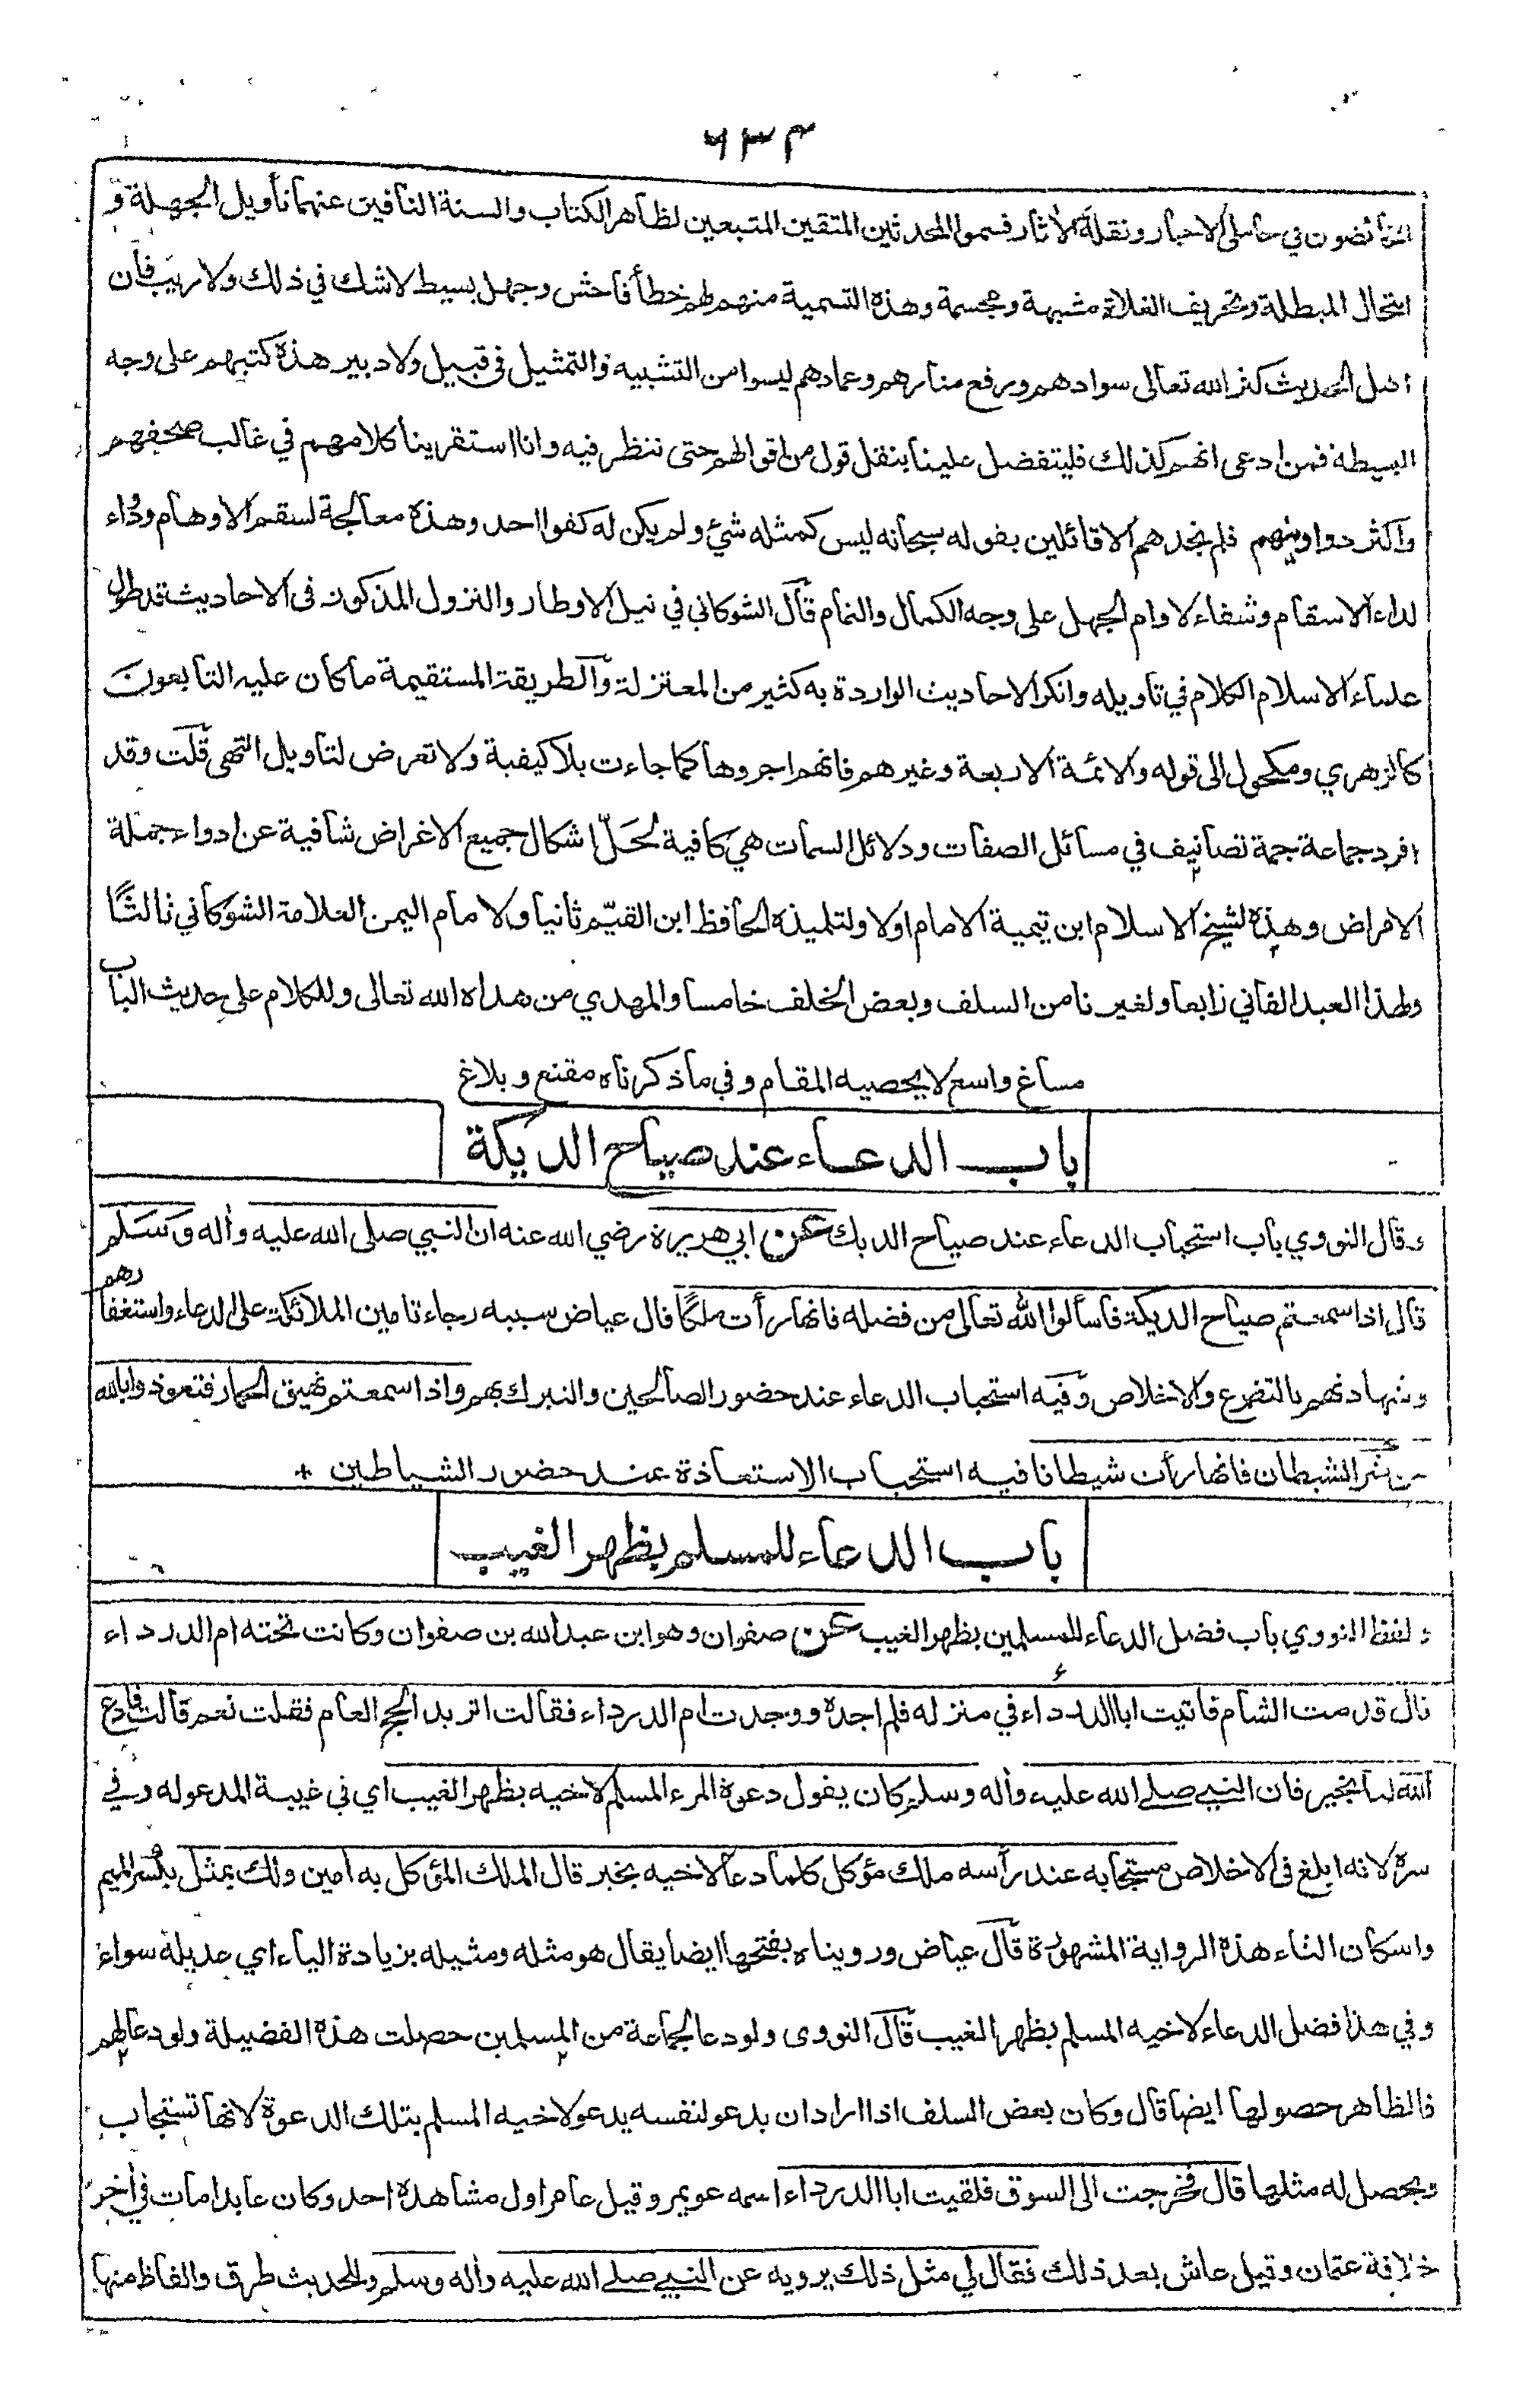 ٦٣٤
الخائضون في حاملى الاخبار ونقلة الأثار فسموا المحدثين المتقين المتبعين لظاهر الكتاب والسنة النافين عنهما تأويل الجهلة و
انتحال المبطلة وتحريف الغلاة مشبهة ومجسمة وهذه التسمية منهم لهم خطأ فاحش وجهل بسيط لاشك في ذلك ولا ريب فان
اهل الحديث كثر الله تعالى سوادهم ورفع منارهم وعمادهم ليسوا من التشبيه والتمثيل في قبيل ولا دبير هذه كتبهم على وجه
البسيطه فمن ادعى انهم كذلك فليتفضل علينا بنقل قول من اقوالهم حتى ننظر فيه وانا استقرينا كلامهم في غالب صحفهم
واكثر دواوينهم فلم نجدهم الا قائلين بقوله سبحانه ليس كمثله شئ ولم يكن له كفوا احد وهذه معالجة لسقم الاوهام ودواء
لداء الاسقام وشفاء لاوام الجهل على وجه الكمال والتمام قال الشوكاني في نيل الاوطار والنزول المذكور في الاحاديث قد طول
علماء الاسلام الكلام في تاويله وانكر الاحاديث الواردة به كثير من المعتزلة والطريقة المستقيمة ما كان عليه التابعون
كالزهري ومكحول الى قوله والائمة الاربعة وغيرهم فانهم اجروها كما جاءت بلا كيفية ولا تعرض لتاويل انتهى قلت وقد
افرد جماعة جمة تصانيف في مسائل الصفات ودلائل السمات هي كافية لحلّ اشكال جميع الاغراض شافية عن ادواء جملة
الامراض وهذه لشيخ الاسلام ابن تيمية الامام اولا ولتلميذه الحافظ ابن القيّم ثانيا ولامام اليمن العلامة الشوكاني ثالثا
ولهذا العبد الفاني رابعا ولغيرنا من السلف وبعض الخلف خامسا والمهدي من هداه الله تعالى وللكلام على حديث الباب
مساغ واسع لا يحصيه المقام وفي ما ذكرناه مقنع وبلاغ
باب الدعاء عند صياح الديكة
وقال النووي باب استحباب الدعاء عند صياح الديك عن ابي هريرة رضي الله عنه ان النبي صلى الله عليه وأله وسلم
قال اذا سمعتم صياح الديكة فاسألوا الله تعالى من فضله فانها رأت ملكا قال عياض سببه رجاء تامين الملائكة على الدعاء واستغفارهم
وشهادتهم بالتضرع والاخلاص وفيه استحباب الدعاء عند حضور الصالحين والتبرك بهم واذا سمعتم نهيق الحمار فتعوذوا بالله
من شر الشيطان فانها رأت شيطانا فيه استحباب الاستعاذة عند حضور الشياطين +
باب الدعاء للمسلم بظهر الغيب
ولفظ النووي باب فضل الدعاء للمسلمين بظهر الغيب عن صفوان وهو ابن عبد الله بن صفوان وكانت تحته ام الدرداء
قال قدمت الشام فاتيت ابا الدرداء في منزله فلم اجده ووجدت ام الدرداء فقالت اتريد الحج العام فقلت نعم قالت فادع
الله لنا بخير فان النبي صلے الله عليه وأله وسلم كان يقول دعوة المرء المسلم لاخيه بظهر الغيب اي في غيبة المدعو له وفي
سره لانه ابلغ في الاخلاص مستجابه عند رأسه ملك مؤكل كلما دعا لاخيه بخير قال الملك المؤكل به أمين ولك بمثل بكسر الميم
واسكان الثاء هذه الرواية المشهورة قال عياض ورويناه بفتحها ايضا يقال هو مثله ومثيله بزيادة الياء اي عديله سواء
وفي هذا فضل الدعاء لاخيه المسلم بظهر الغيب قال النووى ولو دعا لجماعة من المسلمين حصلت هذه الفضيلة ولو دعا لهم
فالظاهر حصولها ايضا قال وكان بعض السلف اذا اراد ان يدعو لنفسه يدعو لاخيه المسلم بتلك الدعوة لانها تستجاب
ويحصل له مثلها قال فخرجت الى السوق فلقيت ابا الدرداء اسمه عويمر وقيل عامر اول مشاهده احد وكان عابدا مات في أخر
خلافة عثمان وقيل عاش بعد ذلك فقال لي مثل ذلك يرويه عن النبي صلے الله عليه وأله وسلم وللحديث طرق والفاظ منها